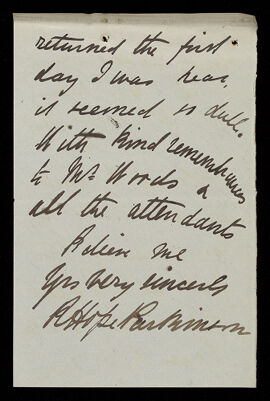 returned the first
day I was here,
it seemed so dull.
With kind remembrances
to Mr. Woods &
all the attendants
Believe me
Yrs very sincerely
R Hope Parkinson